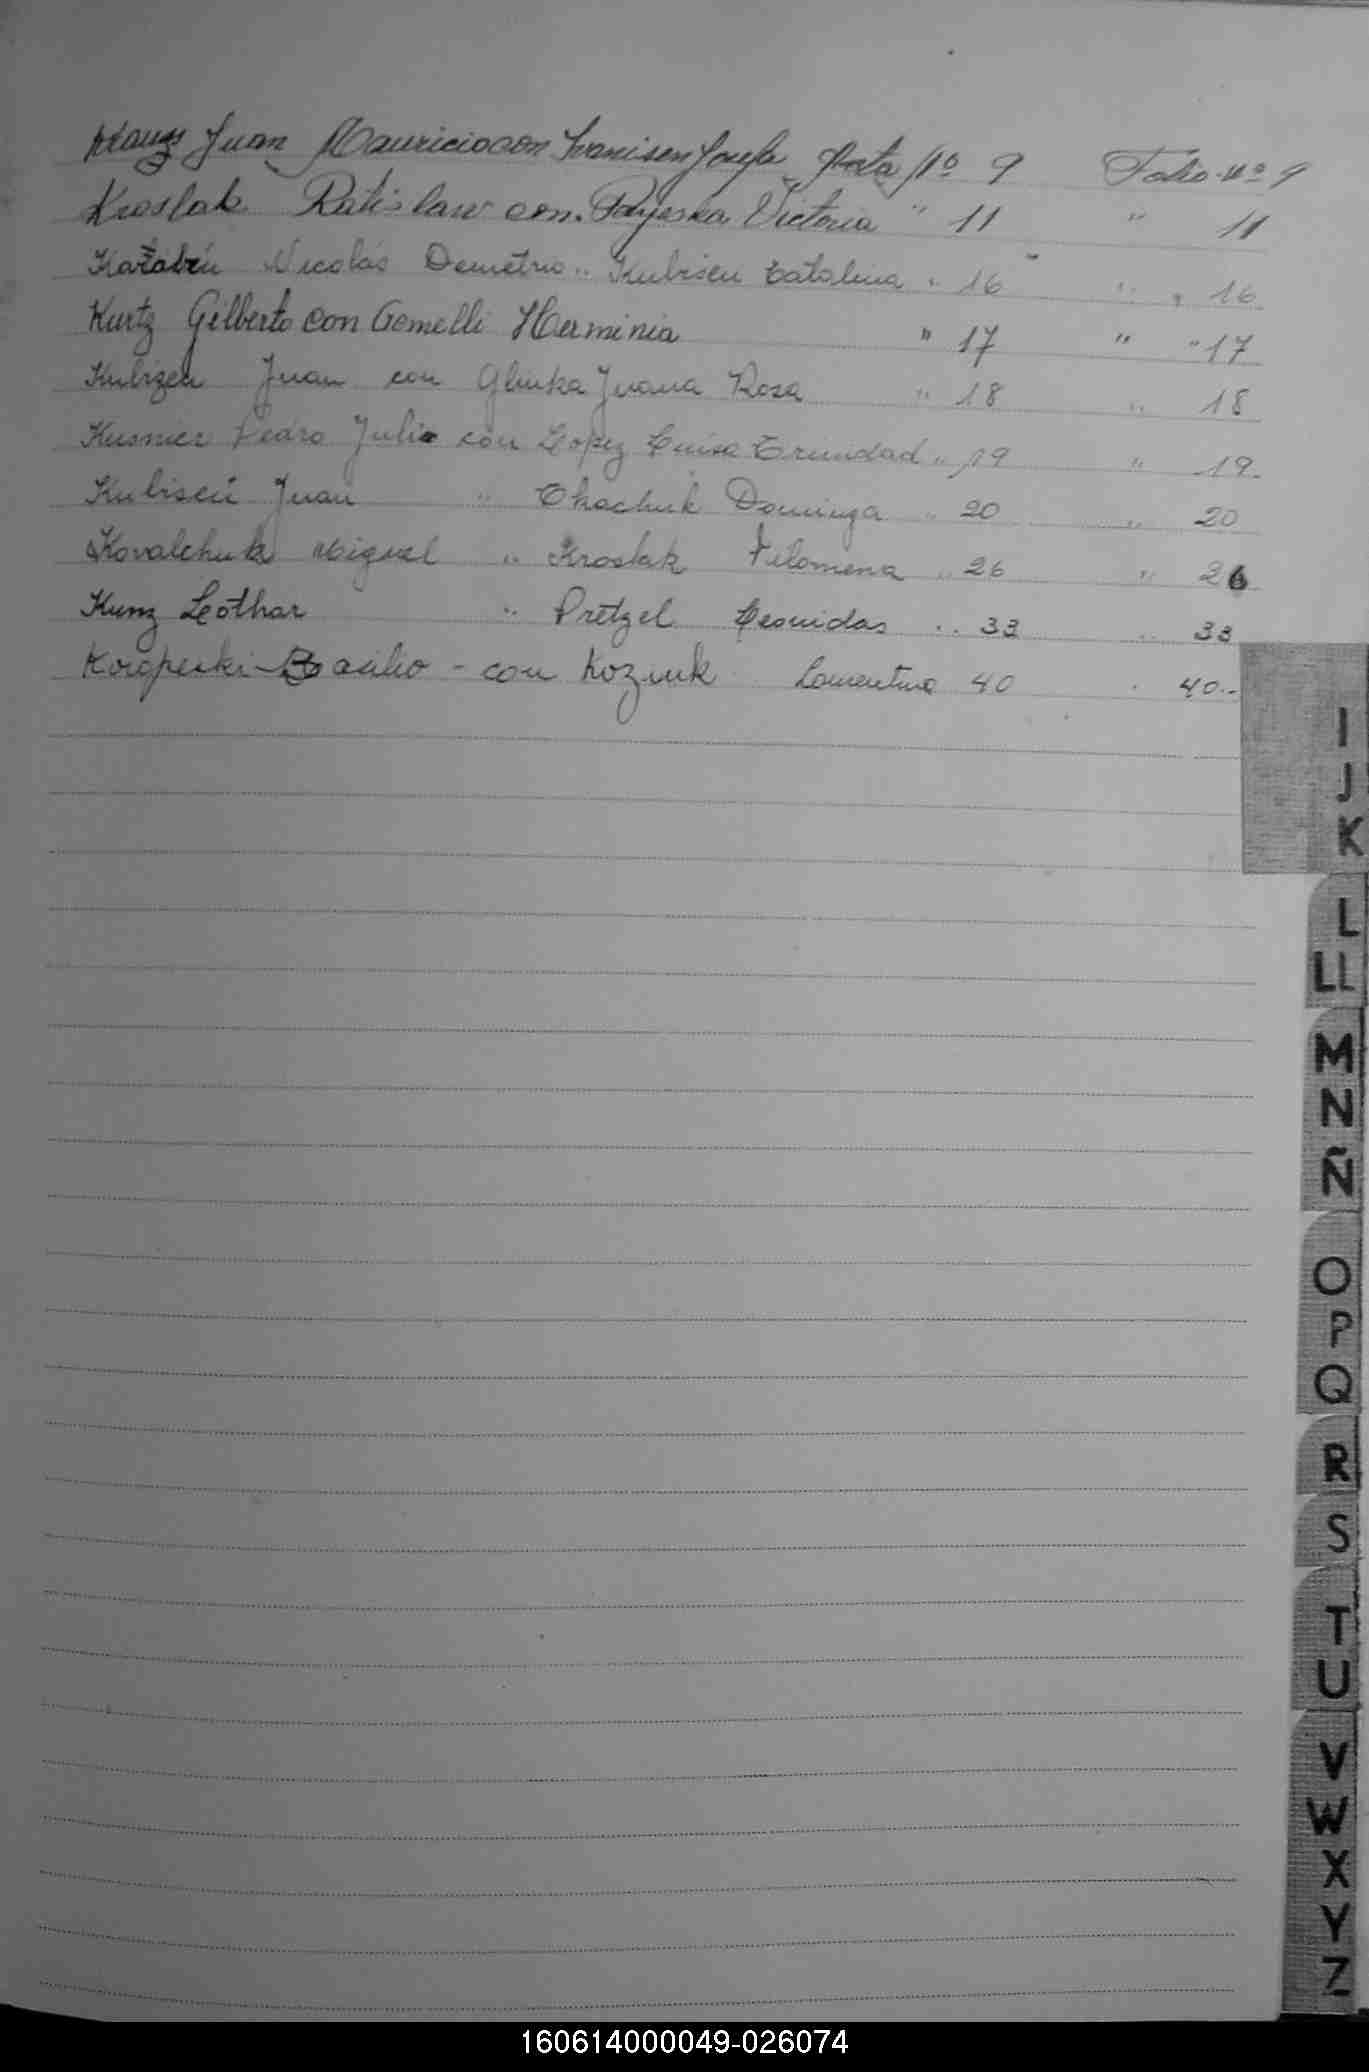 Juan Mauricio con Ivanisen Josefa Acta Nº 9 Folio nº 9
Kroslak Ratislaw con Victoria " 11 " 11
Nicolás Demetrio " Kubiseu Catalina " 16 " " 16
Kurtz Gilberto con Gemelli Herminia " 17 " " 17
Kubizeu Juan con Glinka Juana Rosa " 18 " 18
Kusnier Pedro Julio con Lopez Luisa Trinidad " 19 " 19
Kubiseú Juan " Tkachuk Dominga " 20 " 20
Kovalchuk Miguel " Kroslak Filomena " 26 " 26
Kunz Lothar " Pretzel Leonidas " 33 " 33
Basilio - con Koziuk 40 " 40
I
J
K
L
LL
M
N
Ñ
O
P
Q
R
S
T
U
V
W
X
Y
Z
160614000049-026074